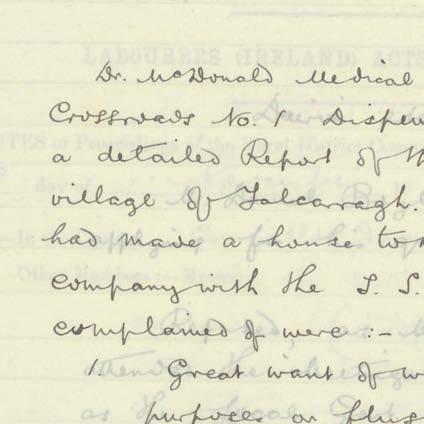 LABOURERS (IRELAND) ACTS
Dr. McDonald Medical
Crossroads No. 1 Dispen
a detailed Report of th
village of Falcarragh.
had made a house to
company with the S. S.
complained of were :-
1. Great want of w
purposes or flus